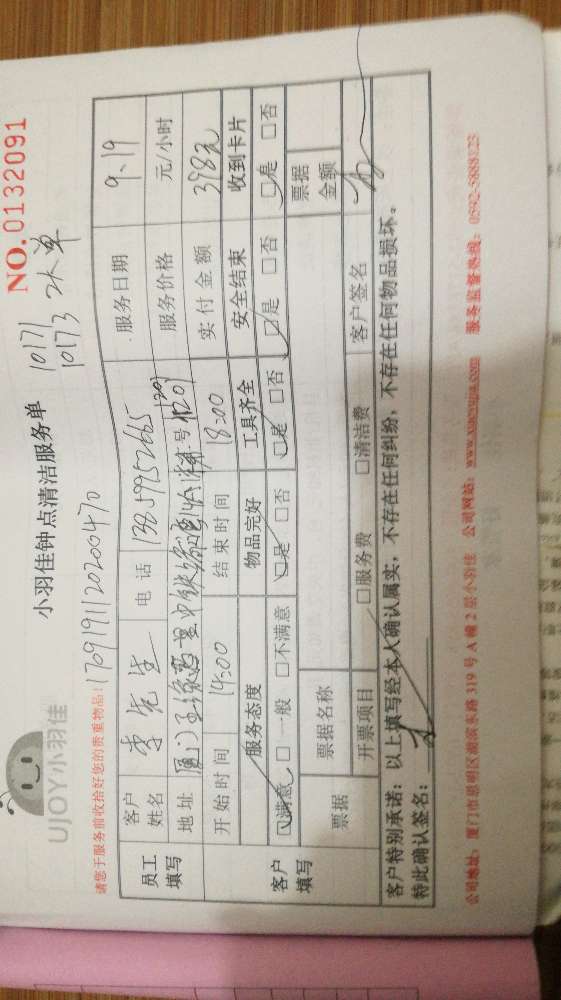 UJOY小羽佳
小羽佳钟点清洁服务单
NO.0132091
10171
10173 2人单
请您于服务前收拾好您的贵重物品!
1709191120200470
员工填写
客户姓名 李先生 电话 13859952665 服务日期 9、19
地址 服务价格 元/小时
开始时间 14:00 结束时间 18:00 实付金额 398元
客户填写
服务态度 物品完好 工具齐全 安全结束 收到卡片
□满意 □一般 □不满意 □是 □否 □是 □否 □是 □否 □是 □否
票据 票据名称 票据金额
开票项目 □服务费 □清洁费 客户签名
客户特别承诺:以上填写经本人确认属实,不存在任何纠纷,不存在任何物品损坏。
特此确认签名:
公司地址:厦门市思明区湖滨东路 319 号 A 幢 2 层小羽佳 公司网站:www.xiaoyujia.com 服务监督热线:0592-5888123